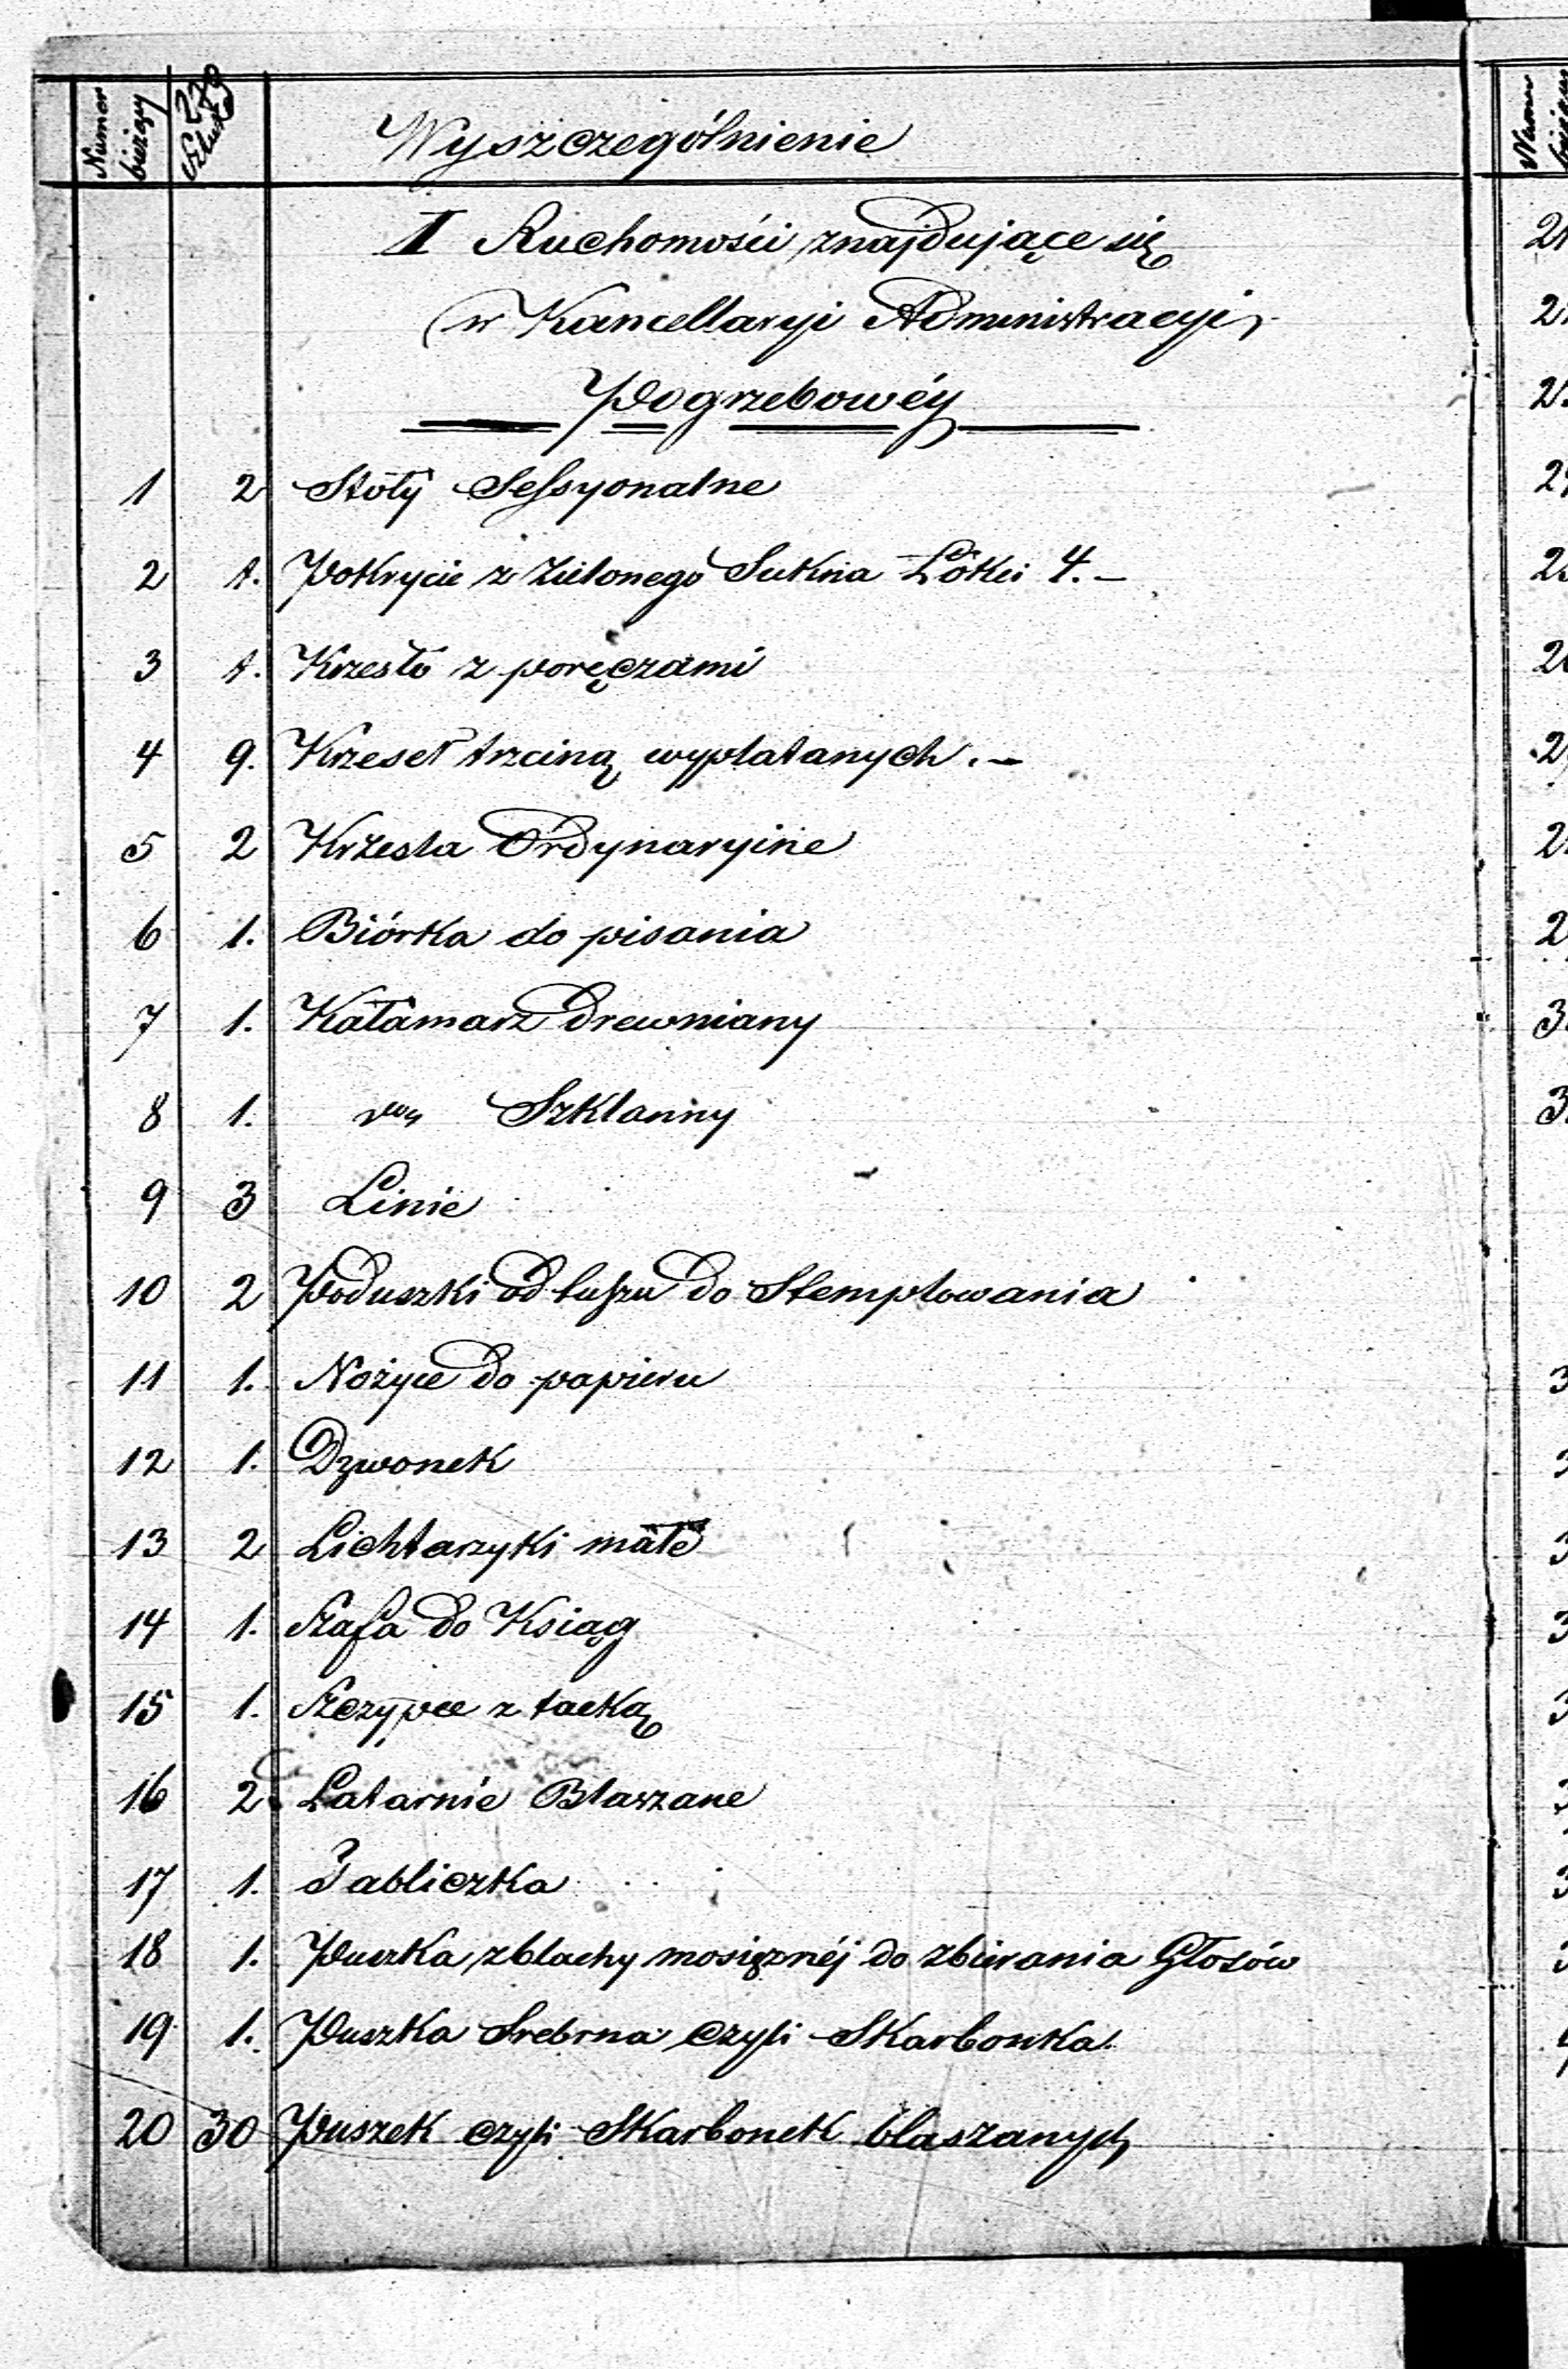 Numer bieżący Sztuk Wyszczególnienie
I Ruchomości znajdujące się
w Kancellaryi Administracyi
Pogrzebowéy
1 2 Stoły Sessyonalne
2 1. Pokrycie z Zielonego Sukna Łokci 4. –
3 1. Krzesło z poręczami
4 9. Krzeseł trzciną wyplatanych. –
5 2 Krzesła Ordynaryine
6 1. Biórka do pisania
7 1. Kałamarz drewniany
8 1. Szklanny
9 3 Linie
10 2 Poduszki od tuszu do Stemplowania
11 1. Nożyce do papieru
12 1. Dzwonek
13 2 Lichtarzyki małe
14 1. Szafa do Ksiąg
15 1. Szczypce z tacką
16 2 Latarnie Blaszane
17 1. Tabliczka
18 1. Puszka z blachy mosiężnéj do zbierania Głosów
19 1. Puszka Srebrna czyli Skarbonka.
20 30 Puszek czyli Skarbonek blaszanych